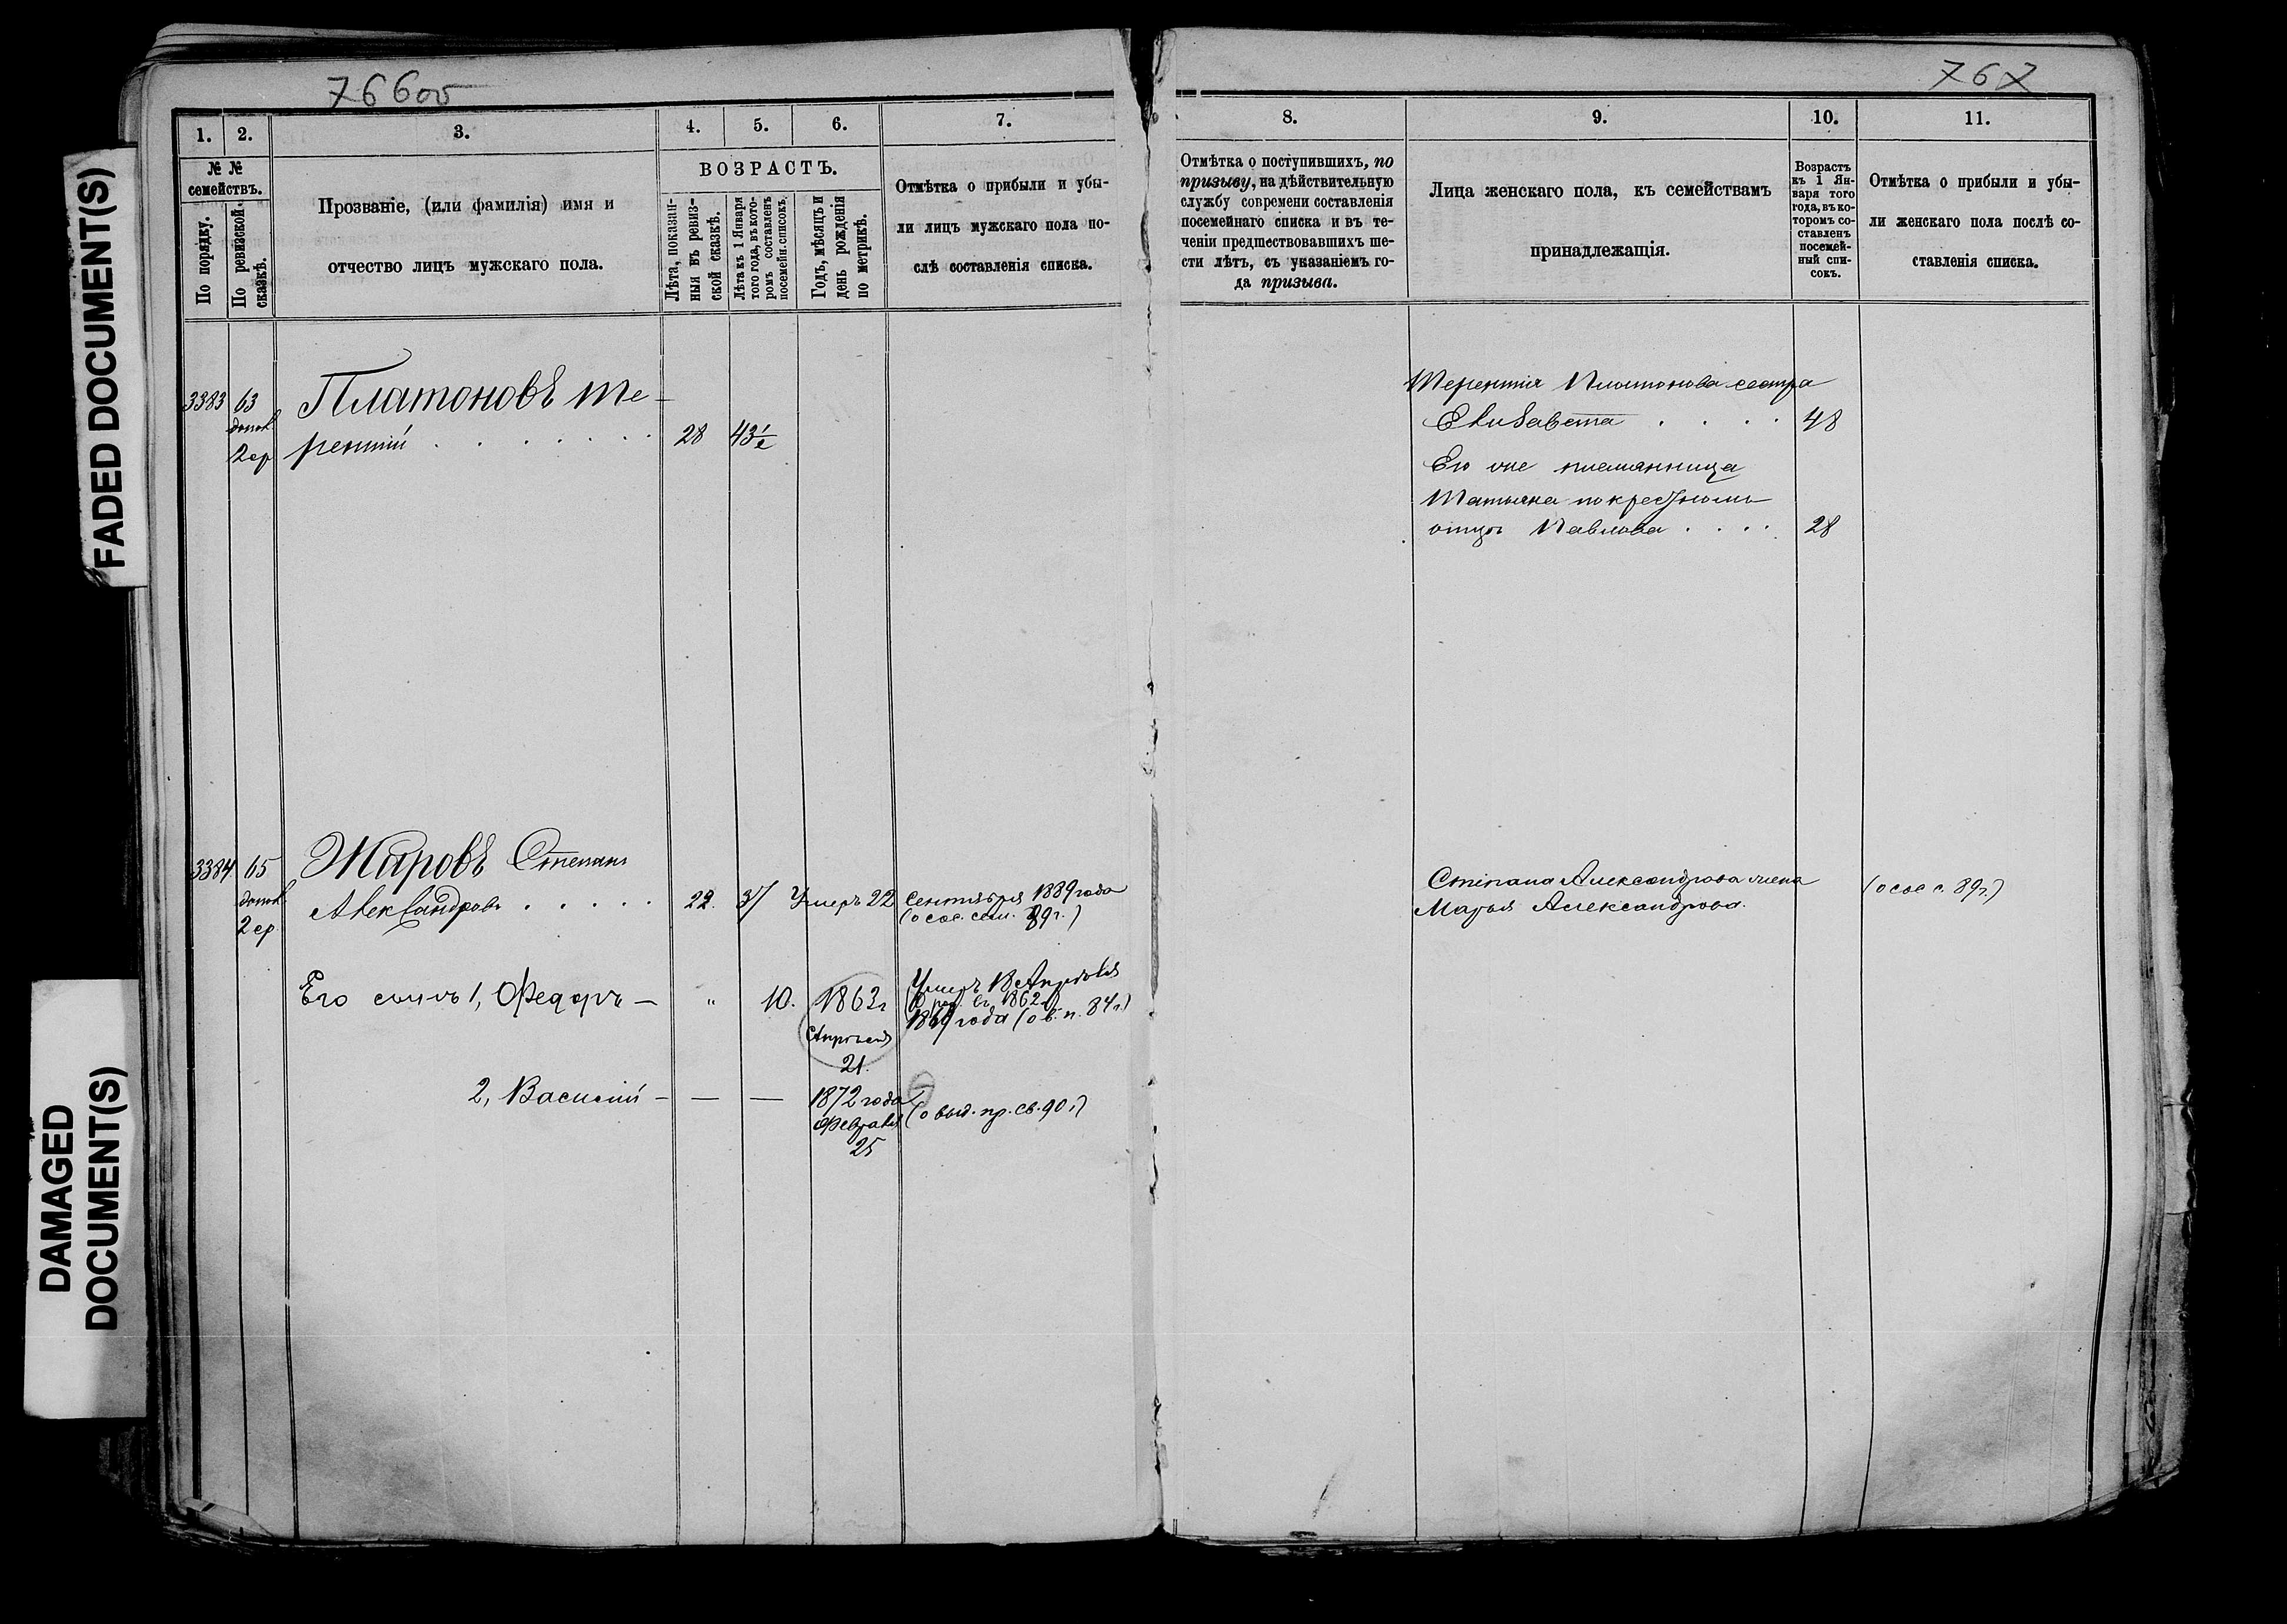 766об
767
FADED DOCUMENT(S)
DAMAGED
DOCUMENT(S)
1.
2.
3.
4.
5.
6.
7.
№ №
семействъ.
По порядку.
По ревизской
сказкѣ.
Прозваніе, (или фамилія) имя и
отчество лицъ мужскаго пола.
ВОЗРАСТЪ.
Лѣта, показан-
ныя въ ревиз-
ской сказкѣ.
Лѣта къ 1 Января
того года, въ кото-
ромъ составленъ
посемейн. списокъ.
Годъ, мѣсяцъ и
день рожденія
по метрикѣ.
Отмѣтка о прибыли и убы-
ли лицъ мужскаго пола по-
слѣ составленія списка.
3383 63
допол.
2 ср
Платоновъ Те-
рентий . . . . . . . 28 43½
3384 65
допол.
2 ср.
Жаровъ Степанъ
Александровъ . . . . . 22. 37 Умеръ 22 Сентября 1889 года
(о сос. сем. 89 г.)
Его сынъ 1, Федоръ — " 10. 1863 г
Апрѣля
21.
Умеръ 18 Апрѣля
1862
года (о в. п. 84 г.)
2, Василій — — — 1872 года
Февраля
25
(о выд. пр. св. 90 г.)
8.
9.
10.
11.
Отмѣтка о поступившихъ, по
призыву, на дѣйствительную
службу современи составленія
посемейнаго списка и въ те-
ченіи предшествовавшихъ ше-
сти лѣтъ, съ указаніемъ го-
да призыва.
Лица женскаго пола, къ семействамъ
принадлежащія.
Возрастъ
къ 1 Ян-
варя того
года, въ ко-
торомъ со-
ставленъ
посемей-
ный спи-
сокъ.
Отмѣтка о прибыли и убы-
ли женскаго пола послѣ со-
ставленія списка.
Терентія Платонова сестра
Елизавета . . . . 48
Его же племянница
Татьяна по крестному
отцу Павлова . . . . 28
Степана Александрова жена
Марья Александрова.
(о сос с. 89 г.)